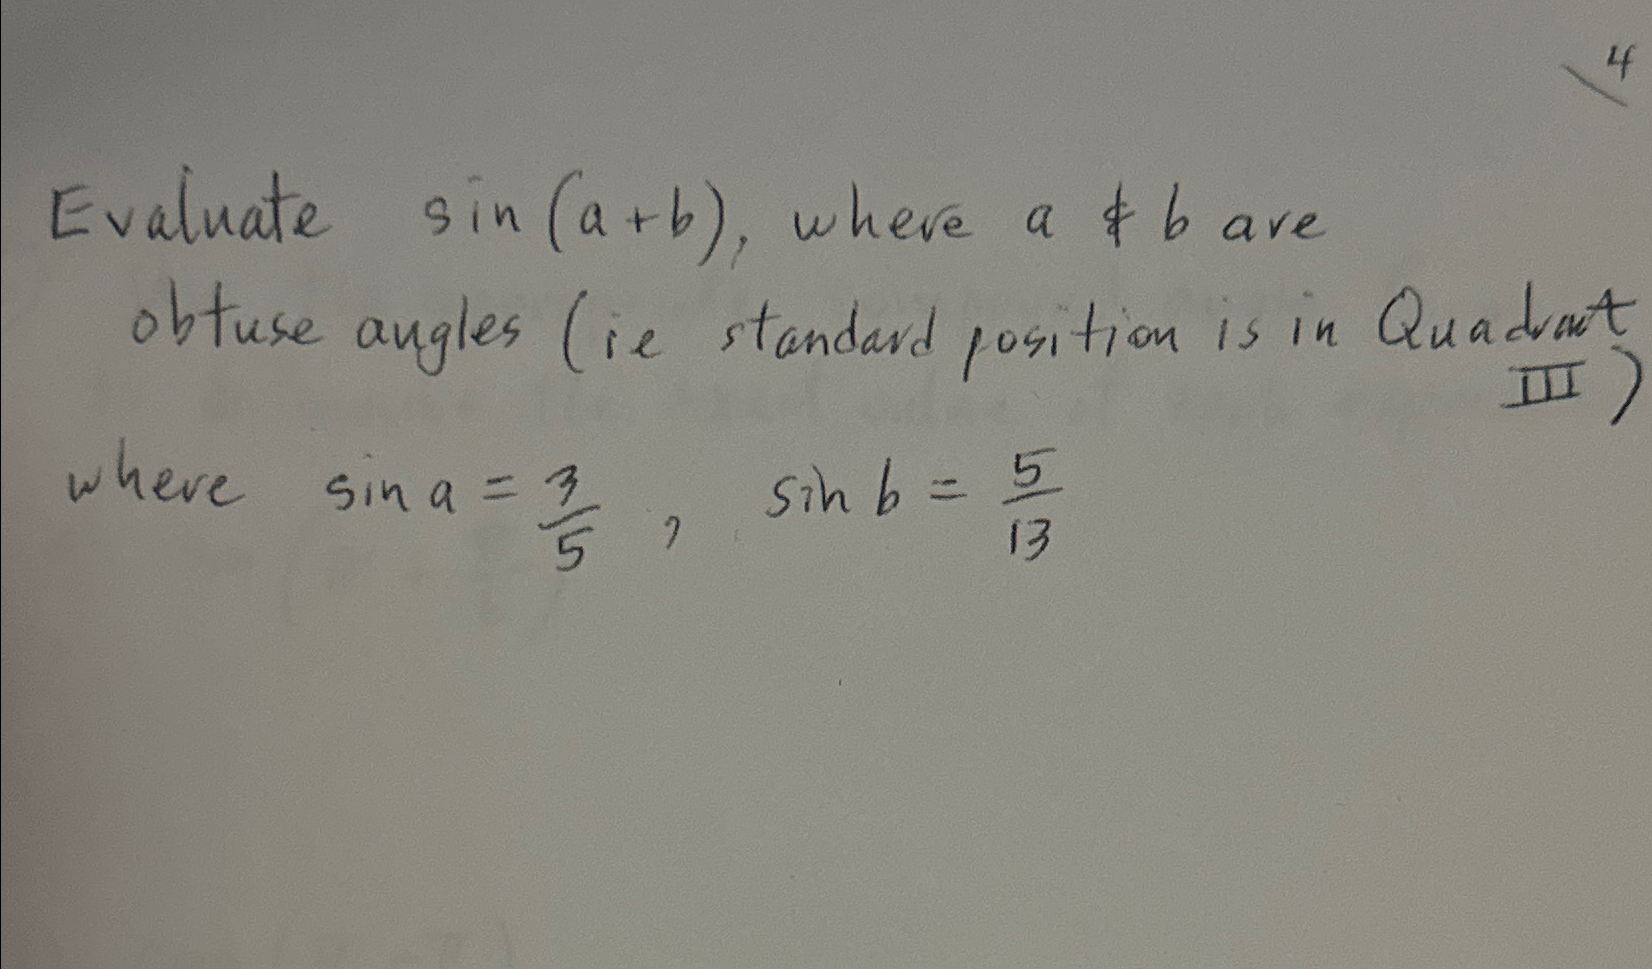 4
Evaluate sin(a+b), where a & b are
obtuse angles (ie standard position is in Quadrant
III)
where sin a = 3/5, sin b = 5/13